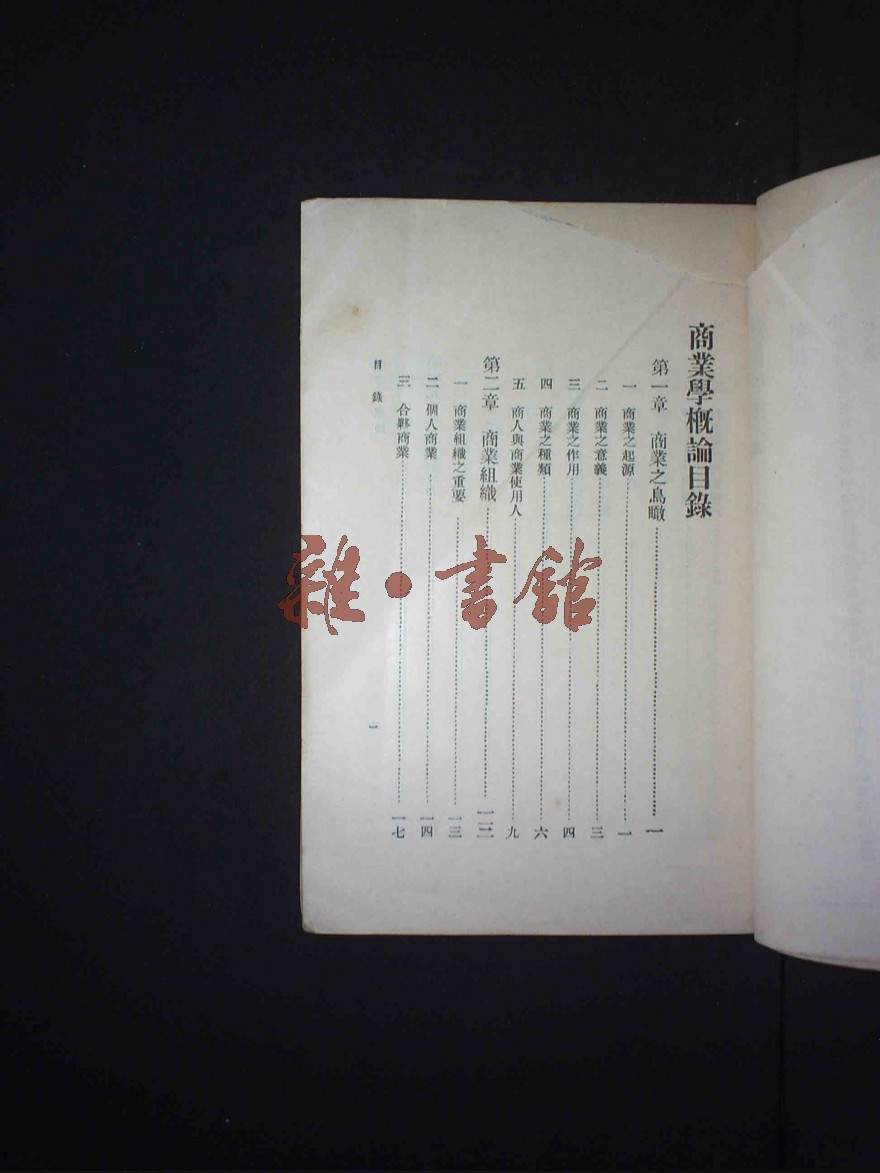 商業學概論目錄
第一章 商業之鳥瞰……一
一 商業之起源……一
二 商業之意義……三
三 商業之作用……四
四 商業之種類……六
五 商人與商業使用人……九
第二章 商業組織……
一 商業組織之重要……一三
二 個人商業……一四
三 合夥商業……一七
目錄
一
雜·書館